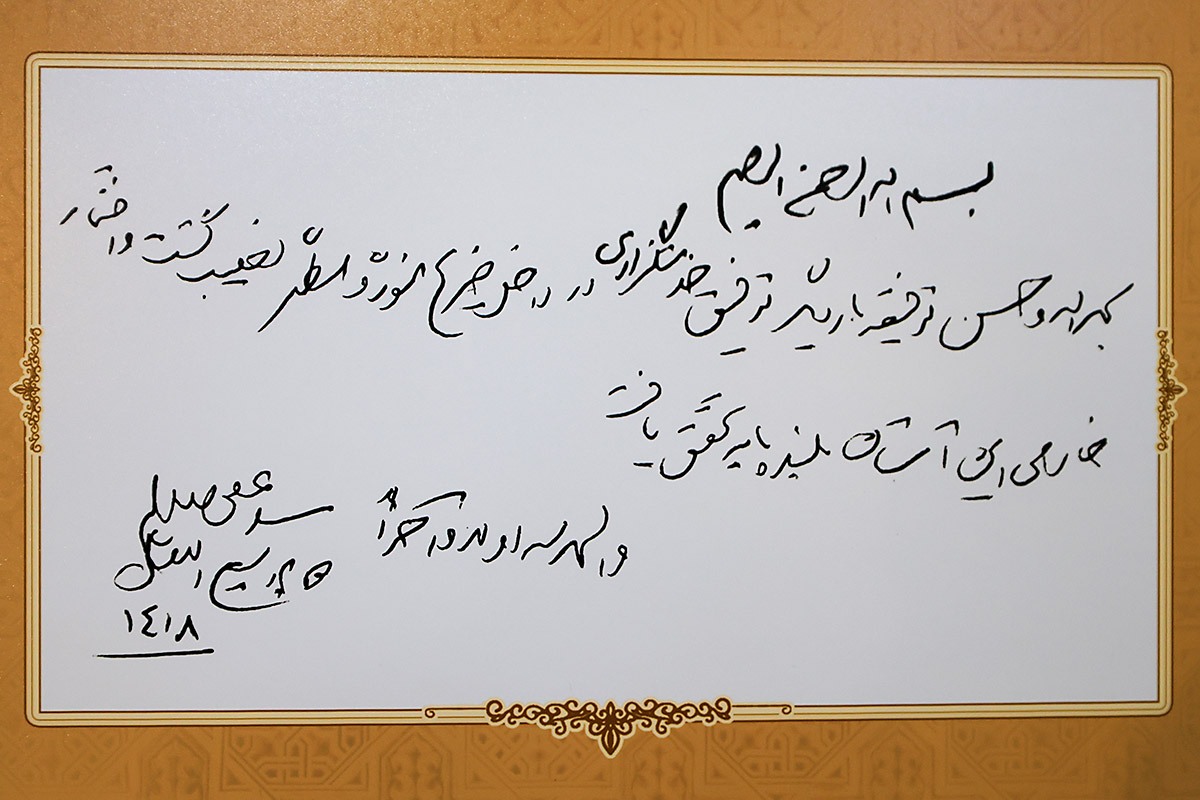 بسم الله الرحمن الرحیم
بحمد الله و حسن توفیقه بار دیگر توفیق خدمتگزاری در داخل ضریح منور و مطهر نصیب گشت و افتخار
خادمی این آستان بلندپایه تحقق یافت
و الحمد لله اولاً و آخراً
سید
ربیع المولود
١٤١٨